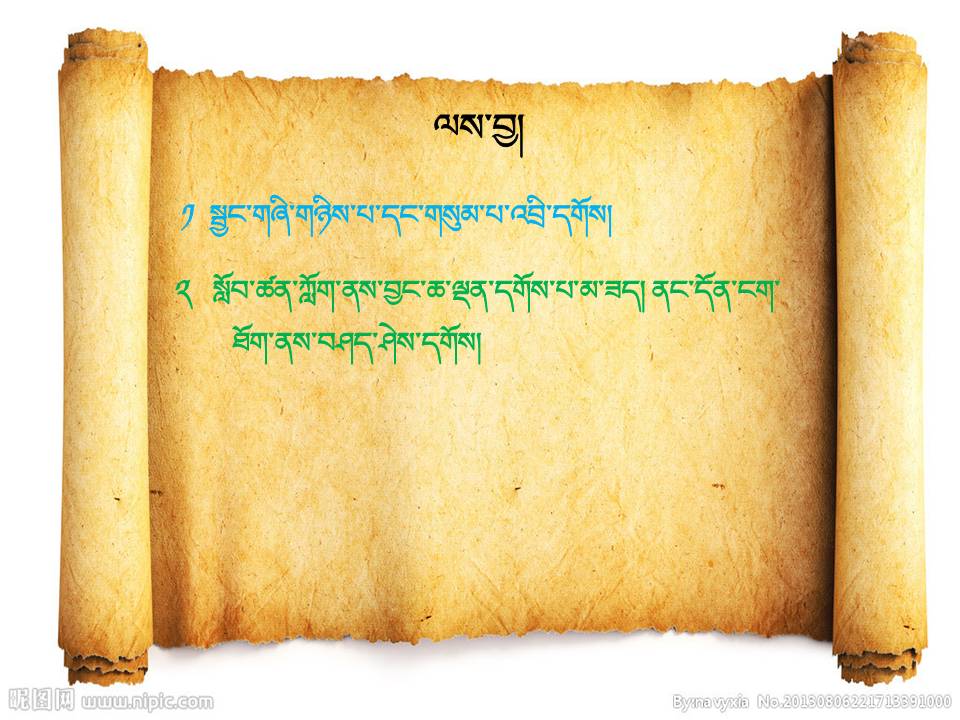 ལས་བྱ།
༡ སྦྱང་གཞི་གཉིས་པ་དང་གསུམ་པ་འབྲི་དགོས།
༢ སློབ་ཚན་ཀློག་ནས་བྱང་ཆ་ལྡན་དགོས་པ་མ་ཟད། ནང་དོན་ངག་
ཐོག་ནས་བཤད་ཤེས་དགོས།
昵图网 www.nipic.com
By:navyxia No.20130806221713391000